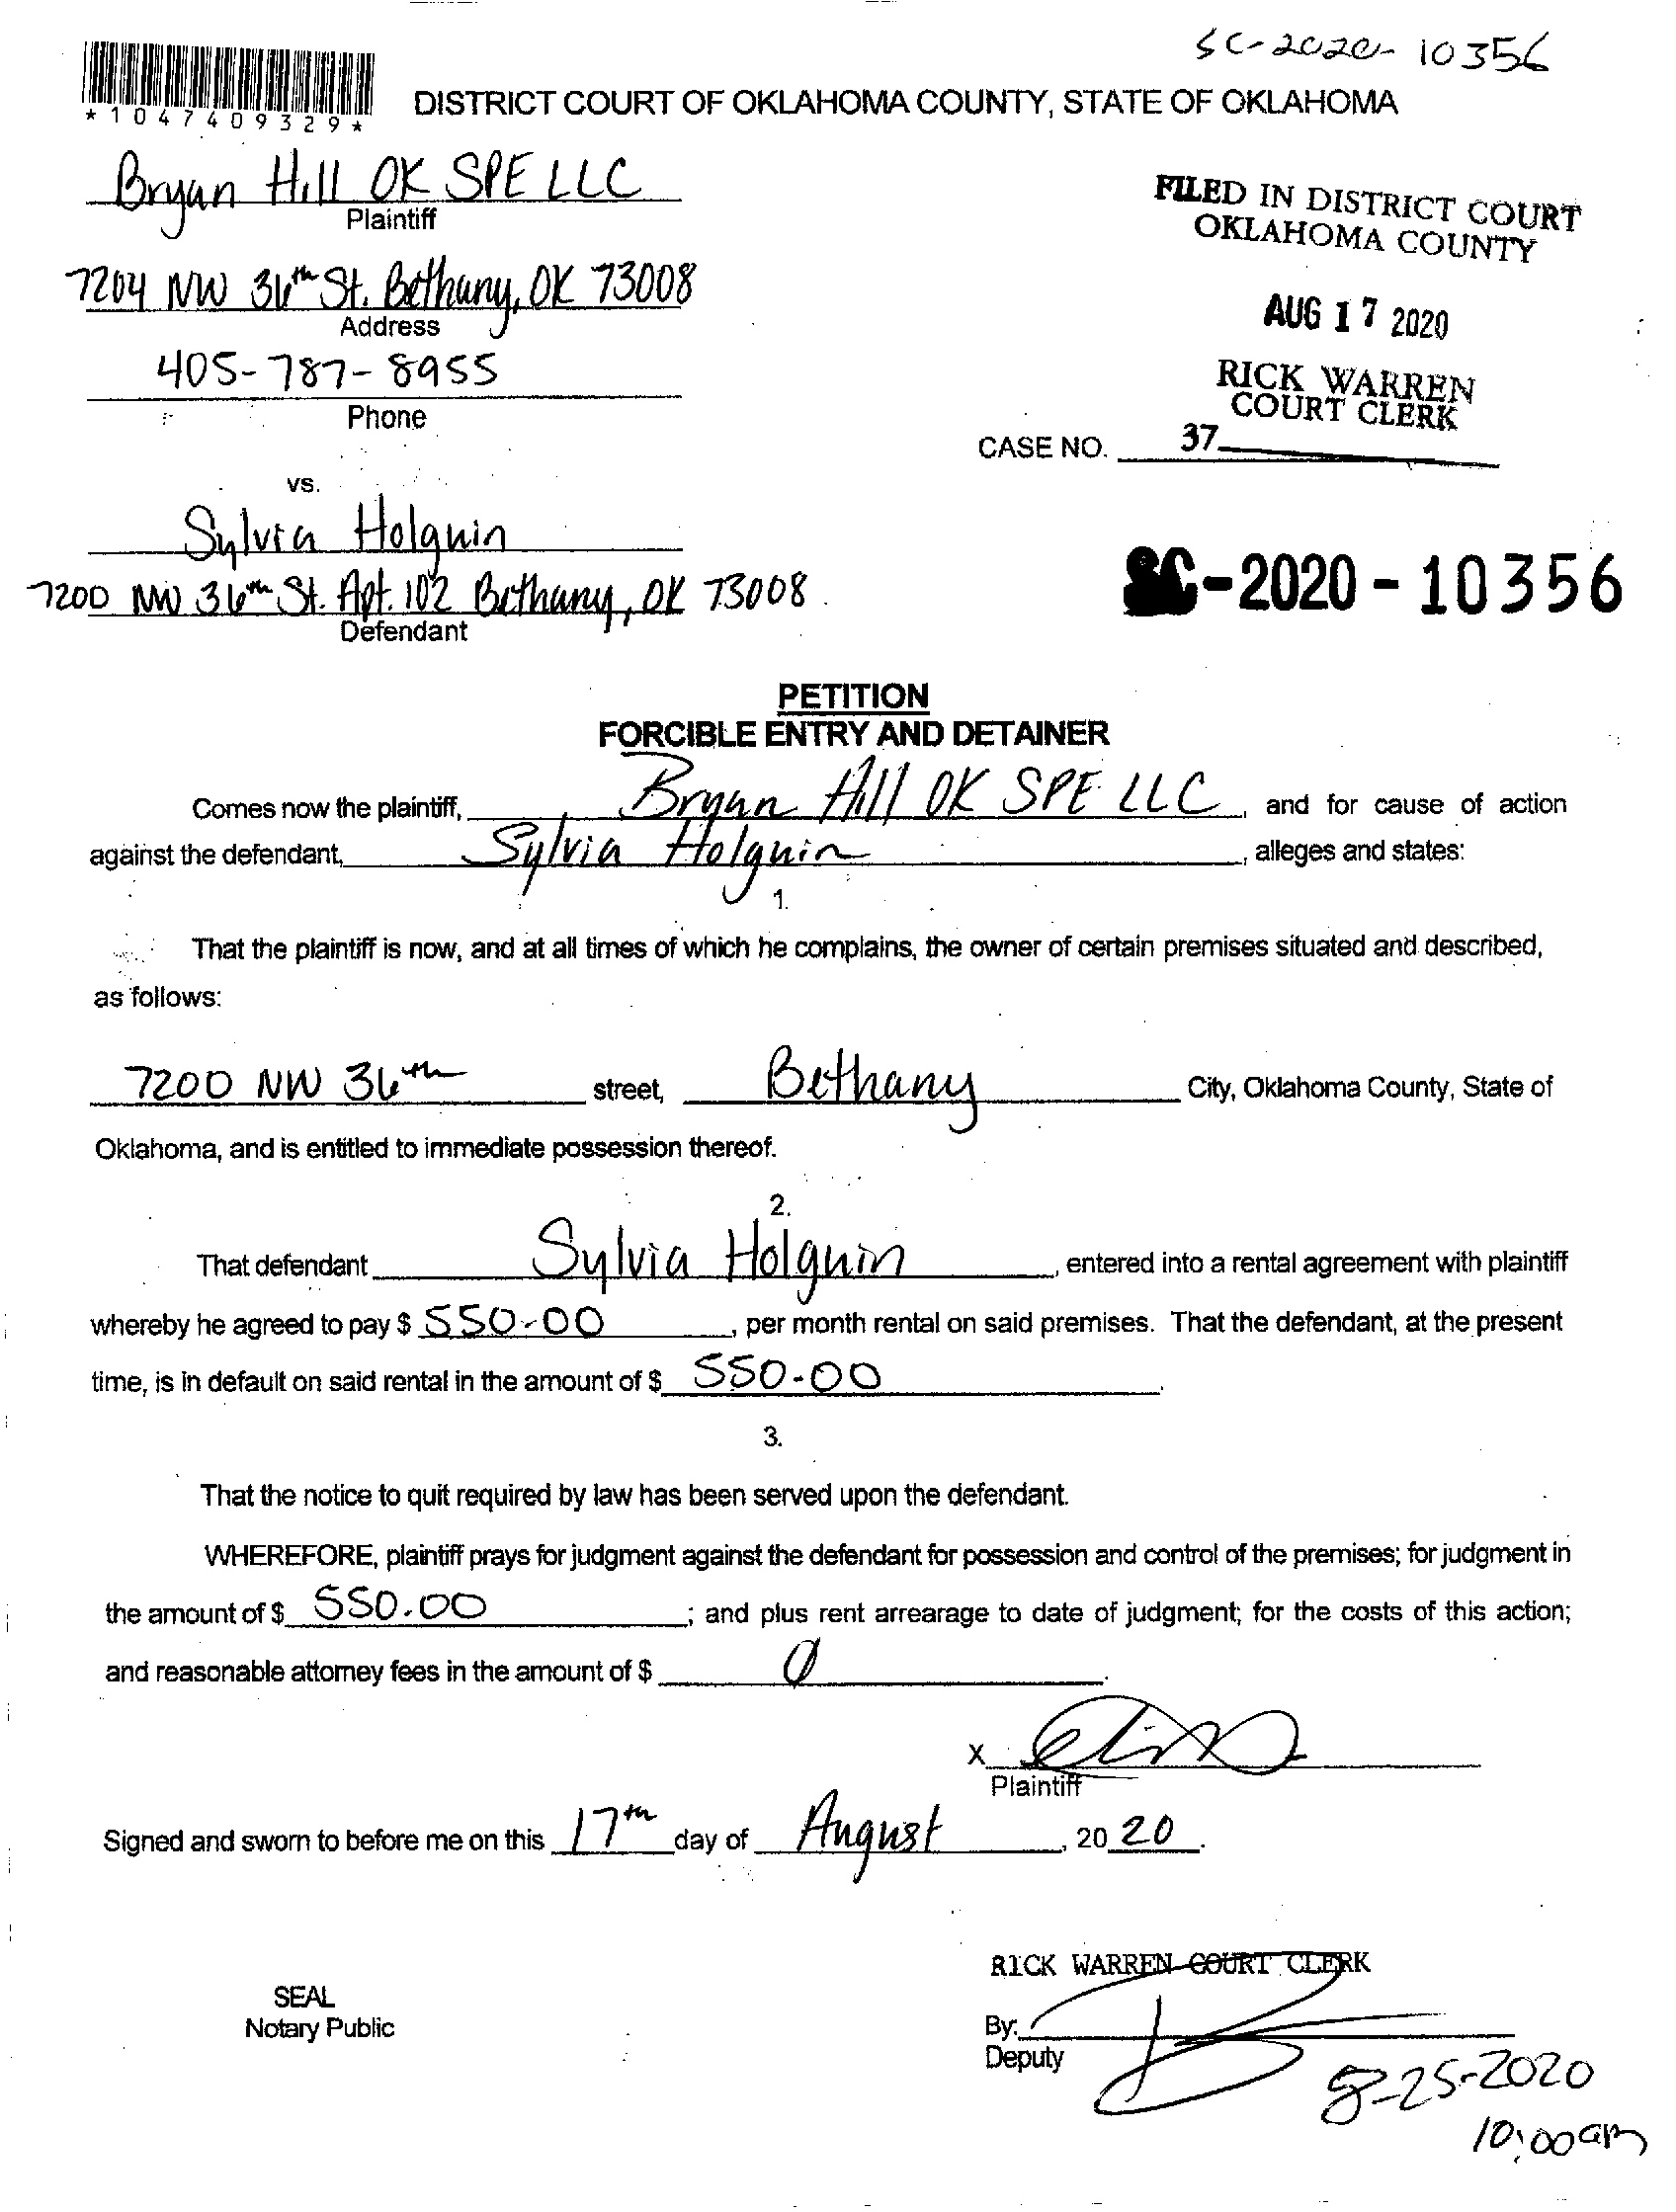 SC-2020-10356
*1047409329*
DISTRICT COURT OF OKLAHOMA COUNTY, STATE OF OKLAHOMA
Bryan Hill OK SPE LLC
Plaintiff
FILED IN DISTRICT COURT
OKLAHOMA COUNTY
7204 NW 36th St. Bethany, OK 73008
Address
AUG 17 2020
405-787-8955
Phone
RICK WARREN
COURT CLERK
CASE NO. 37
vs.
Sylvia Holguin
7200 NW 36th St. Apt. 102 Bethany, OK 73008
Defendant
SC-2020-10356
PETITION
FORCIBLE ENTRY AND DETAINER
Comes now the plaintiff, Bryan Hill OK SPE LLC, and for cause of action
against the defendant, Sylvia Holguin, alleges and states:
1.
That the plaintiff is now, and at all times of which he complains, the owner of certain premises situated and described,
as follows:
7200 NW 36th street, Bethany City, Oklahoma County, State of
Oklahoma, and is entitled to immediate possession thereof.
2.
That defendant Sylvia Holguin, entered into a rental agreement with plaintiff
whereby he agreed to pay $ 550-00, per month rental on said premises. That the defendant, at the present
time, is in default on said rental in the amount of $ 550-00.
3.
That the notice to quit required by law has been served upon the defendant.
WHEREFORE, plaintiff prays for judgment against the defendant for possession and control of the premises; for judgment in
the amount of $ 550.00; and plus rent arrearage to date of judgment; for the costs of this action;
and reasonable attorney fees in the amount of $ 0.
X
Plaintiff
Signed and sworn to before me on this 17th day of August, 2020.
RICK WARREN COURT CLERK
SEAL
Notary Public
By:
Deputy
8-25-2020
10:00am